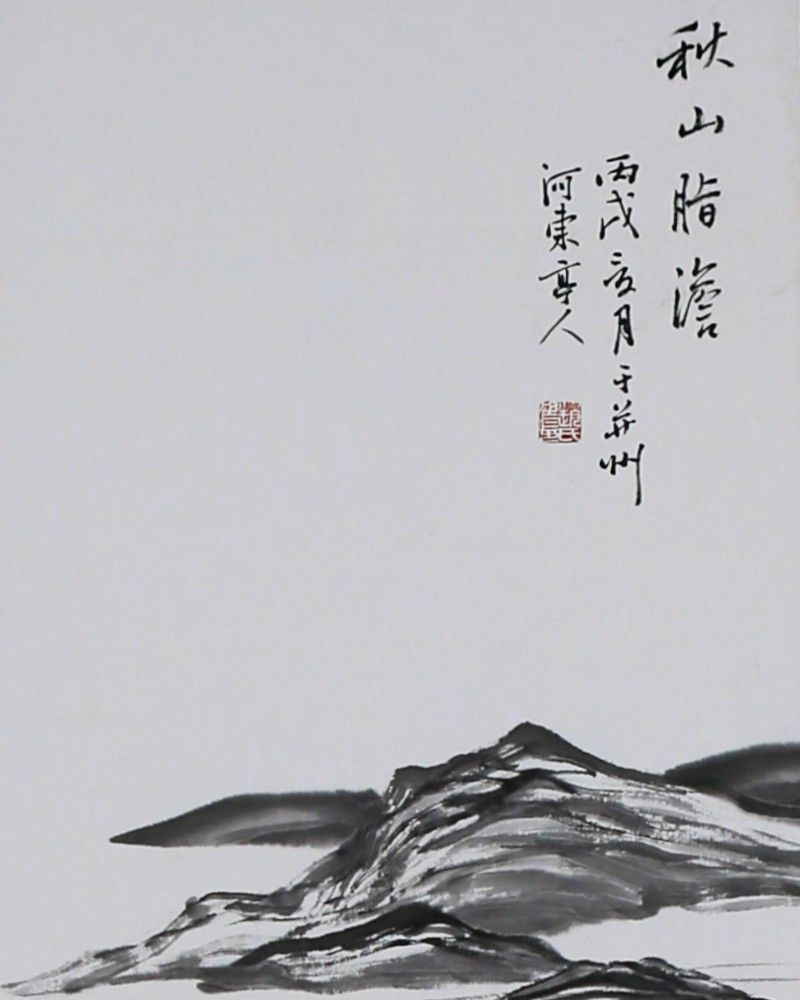 秋山脂澹
丙戌夏月于并州
河東亭人